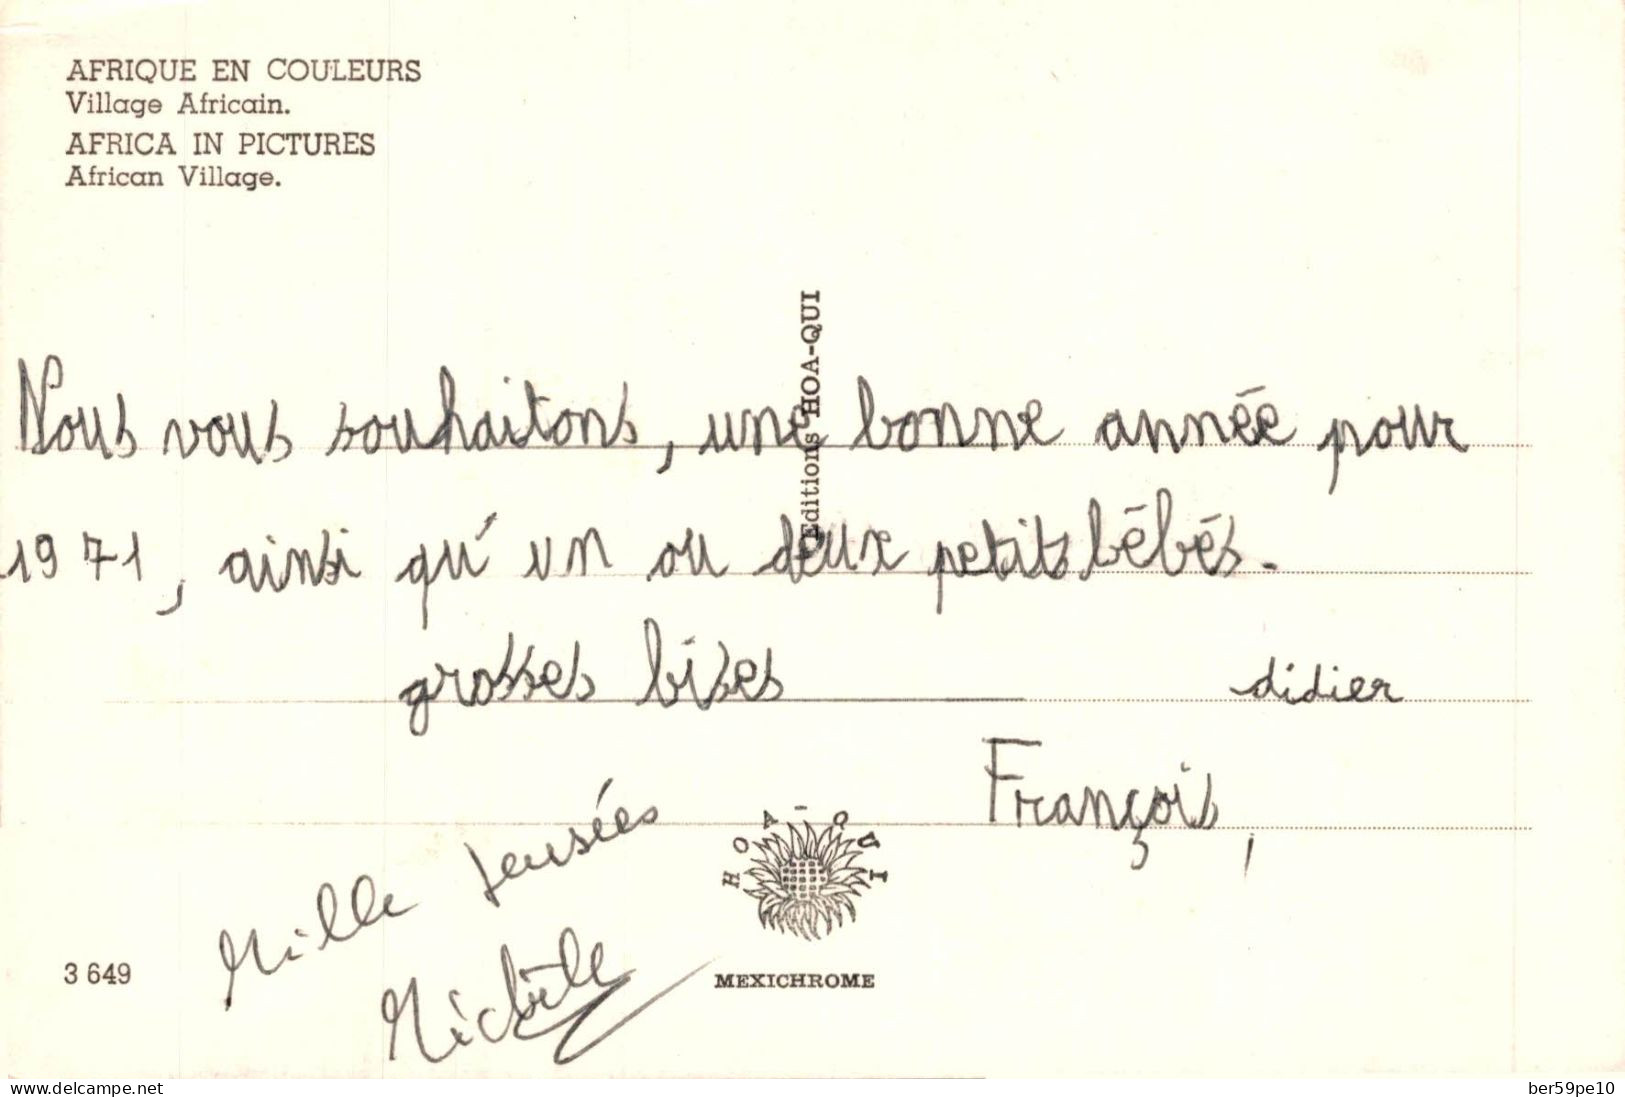 AFRIQUE EN COULEURS
Village Africain.
AFRICA IN PICTURES
African Village.
Editions HOA-QUI
Nous vous souhaitons, une bonne année pour
1971, ainsi qu'un ou deux petits bébés.
grosses bises
didier
François,
Mille pensées
Michèle
HOA-QUI
3 649
MEXICHROME
www.delcampe.net
ber59pe10